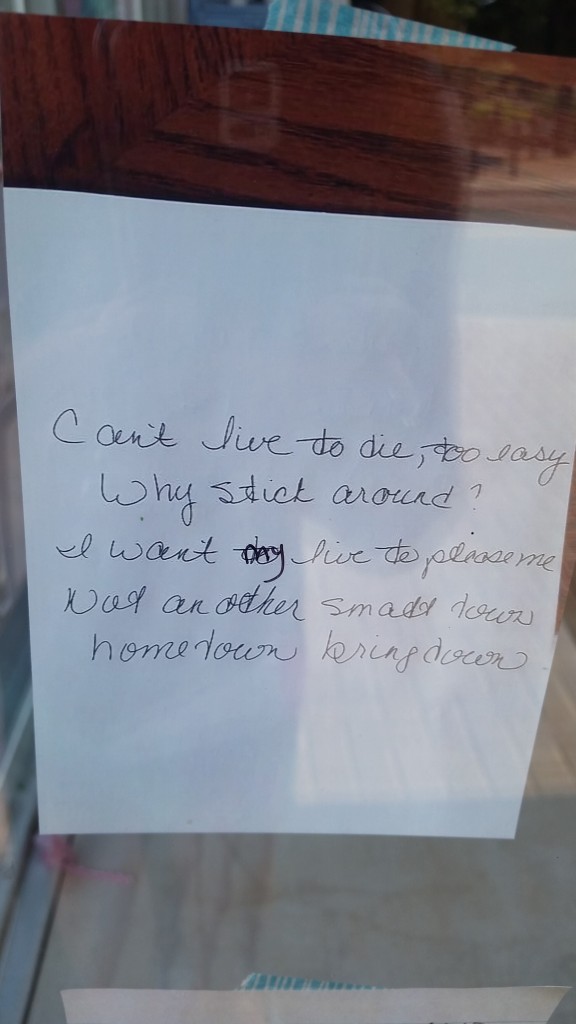 Can't live to die, too easy
Why stick around?
I want my live to please me
Not another small town
hometown bringdown